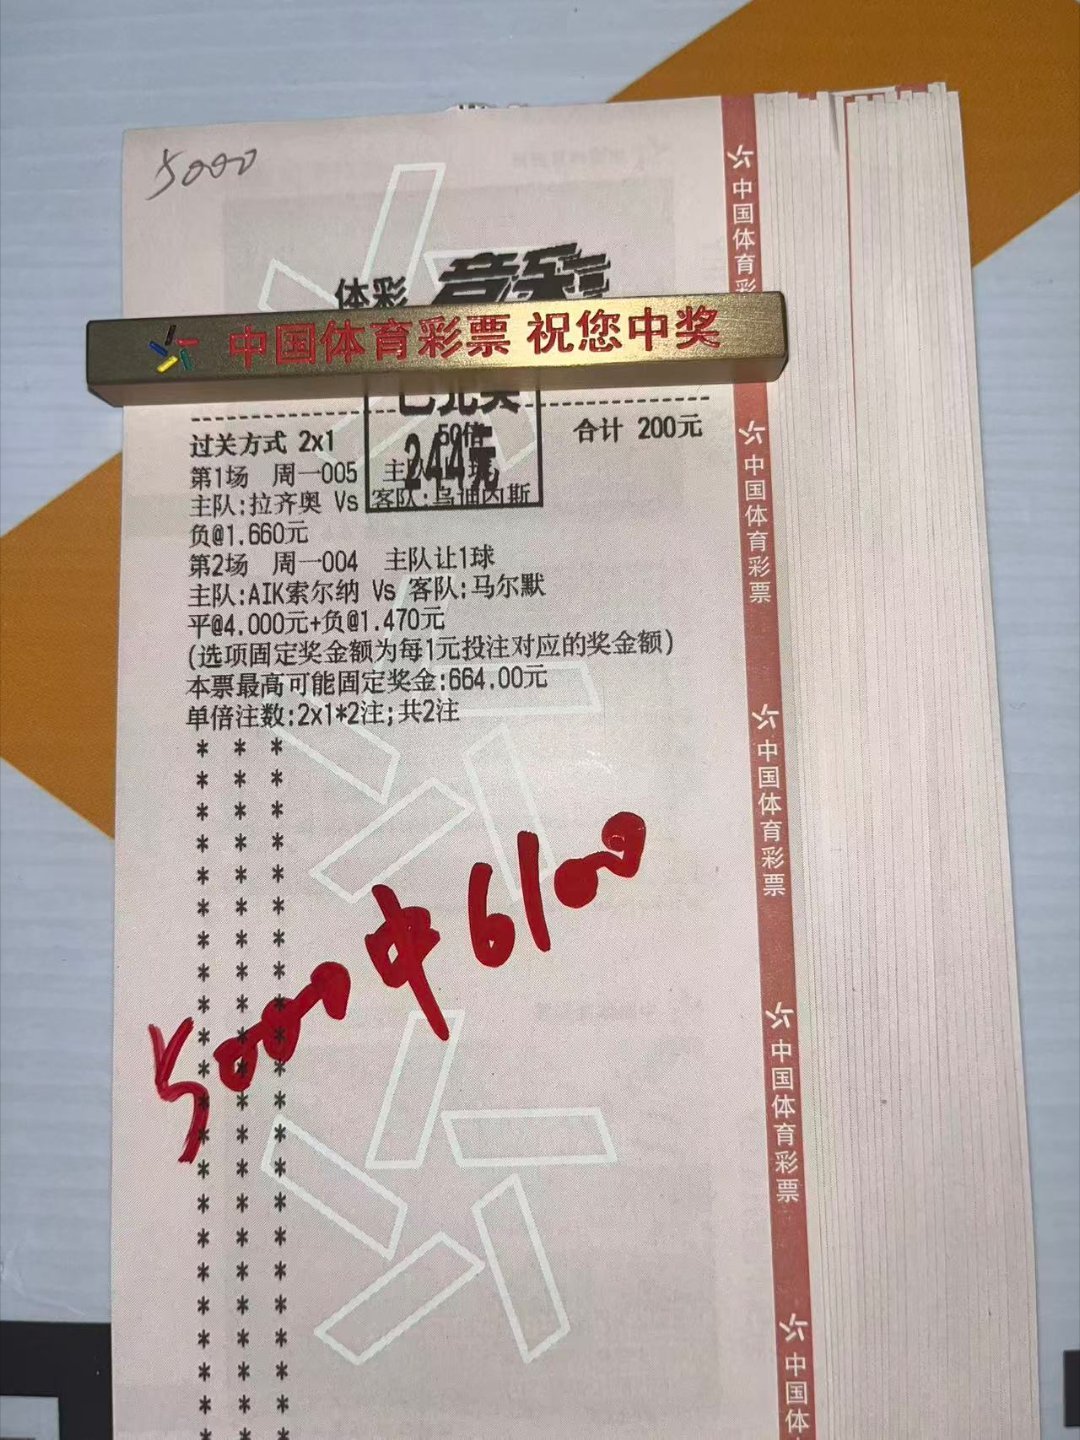 5000
体彩 竞彩
中国体育彩票 祝您中奖
已兑奖
244元
50倍 合计 200元
过关方式 2x1
第1场 周一005 主队
主队:拉齐奥 Vs 客队:乌迪内斯
负@1.660元
第2场 周一004 主队让1球
主队:AIK索尔纳 Vs 客队:马尔默
平@4.000元+负@1.470元
(选项固定奖金额为每1元投注对应的奖金额)
本票最高可能固定奖金:664.00元
单倍注数:2x1*2注;共2注
5000中6100
中国体育彩
中国体育彩票
中国体育彩票
中国体育彩票
中国体